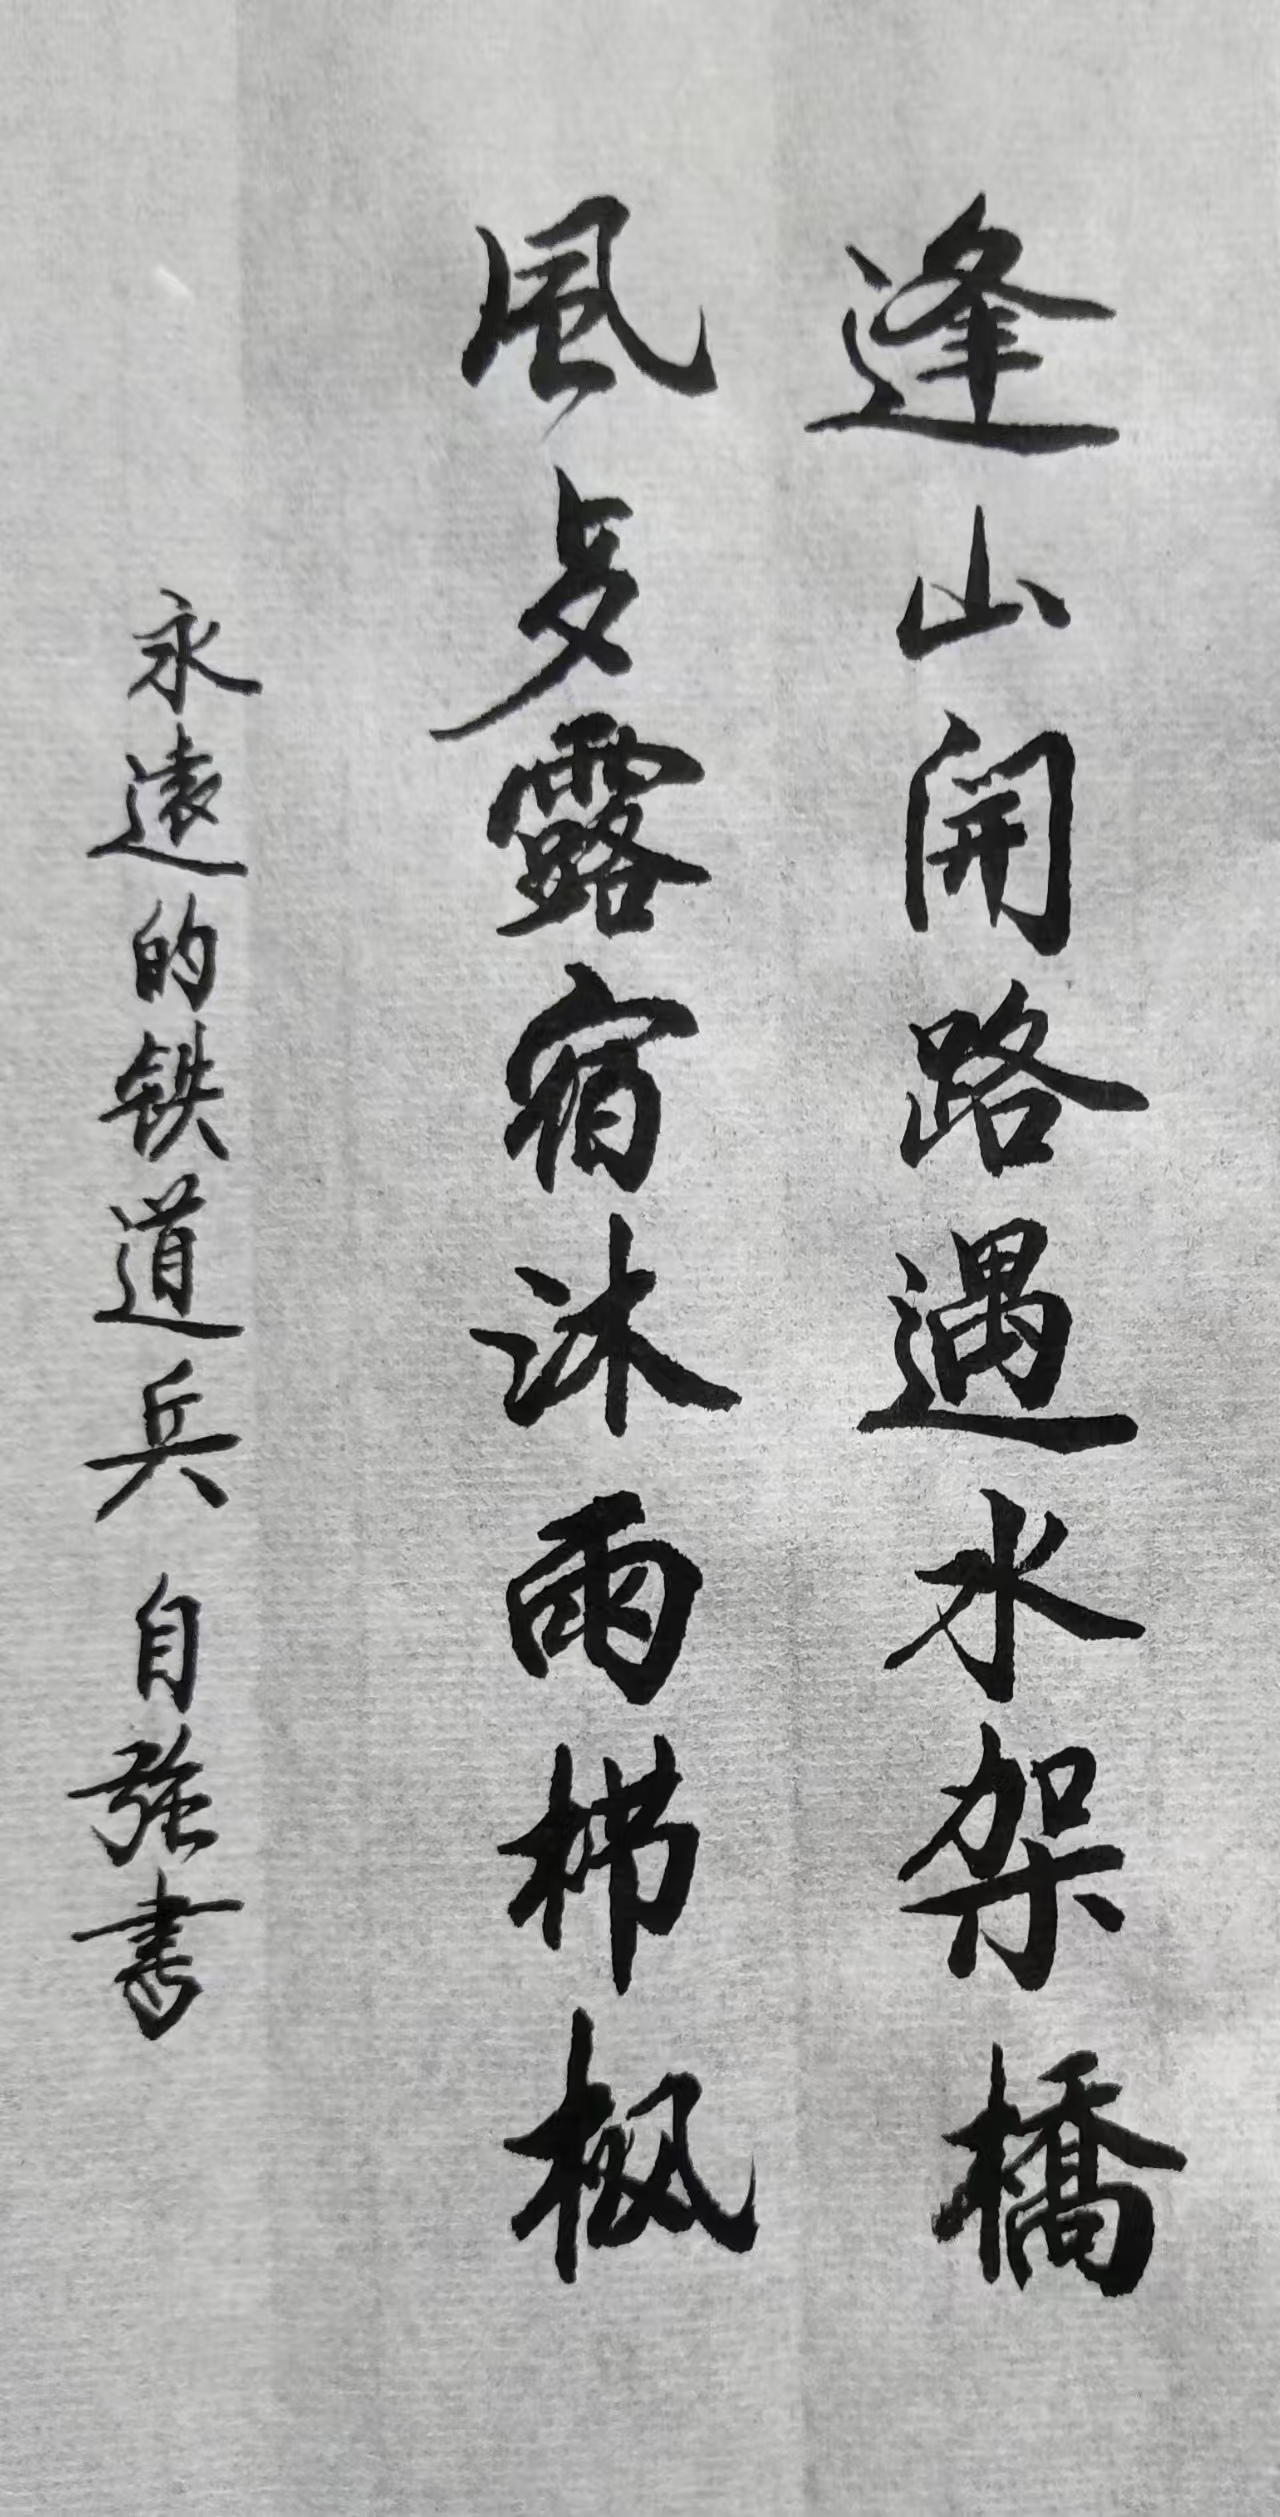 逢山開路遇水架橋
風歺露宿沐雨栉枫
永遠的鉄道兵 自强書